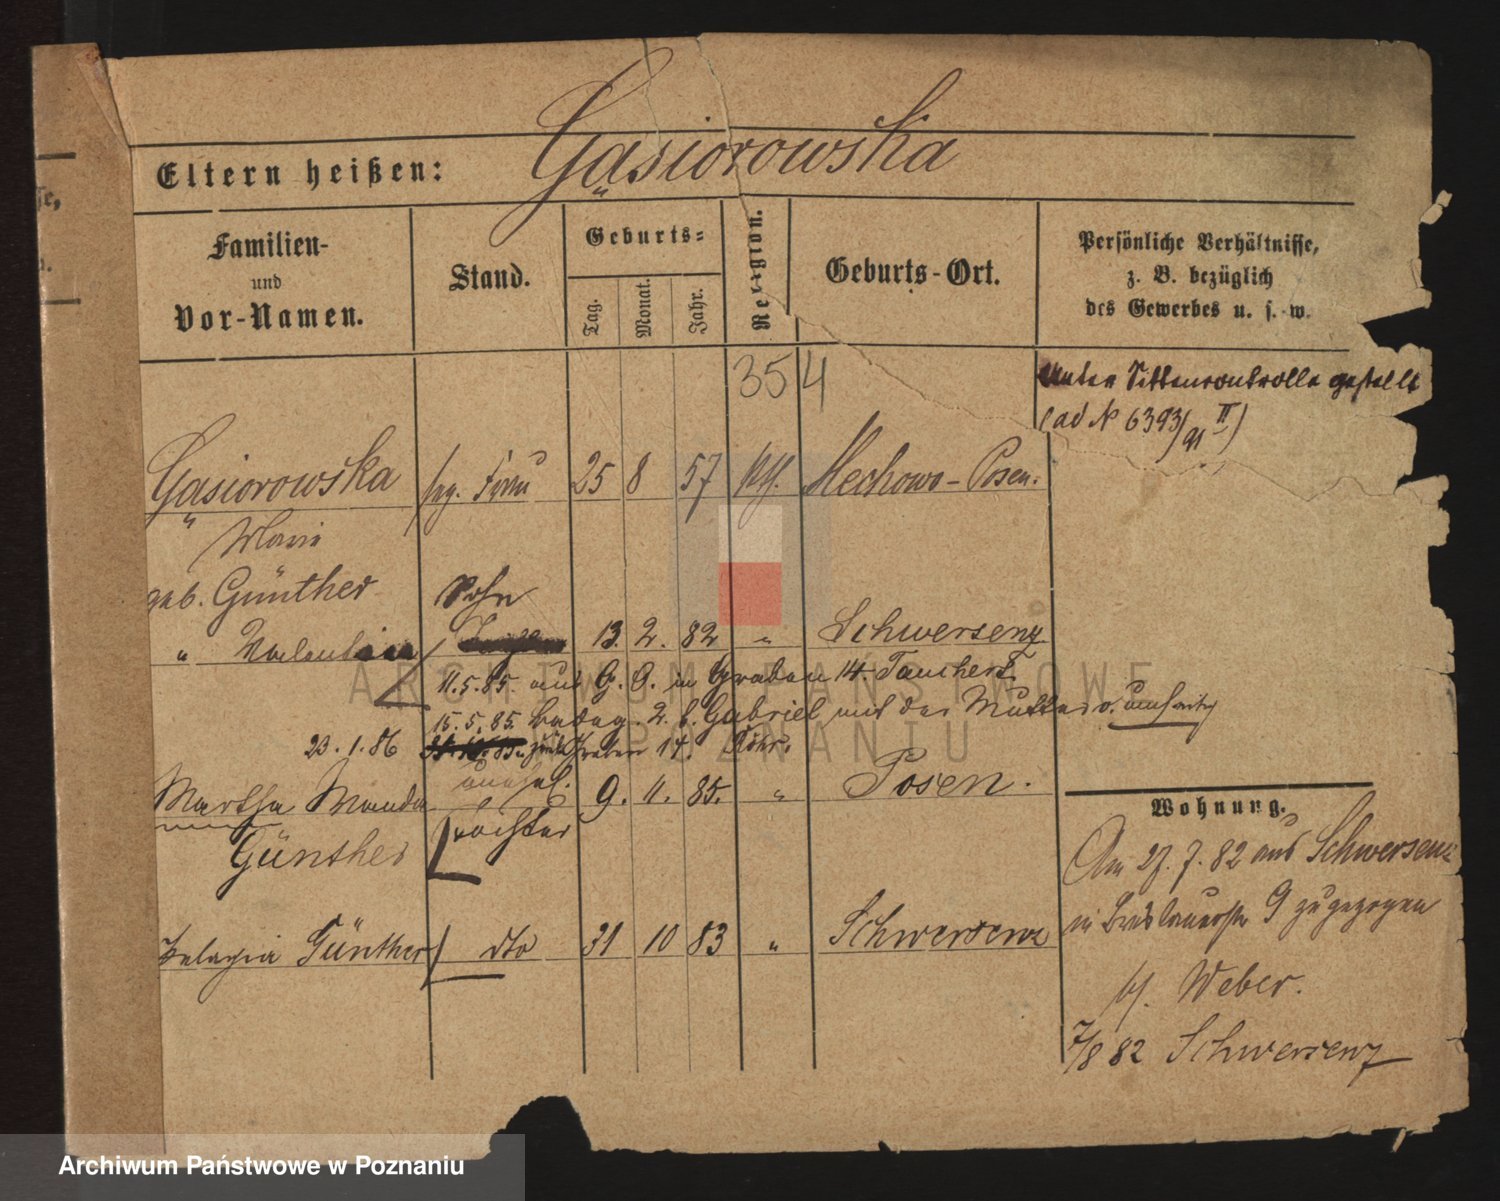 Gąsiorowska
Eltern heißen:
Familien-
und
Vor-Namen.
Stand.
Geburts=
Tag.
Monat.
Jahr.
Religion.
Geburts-Ort.
Persönliche Verhältnisse,
z. B. bezüglich
des Gewerbes u. s. w.
354
Unter Sittenkontrolle gestellt
(ad № 6393/91 II)
Gąsiorowska 25 8 57 kth. Mechowo-Posen.
Marie
geb. Günther Sohn
" 13. 2. 82 " Schwersenz
11.5.85. aus G. O. in Graben 14.
15.5.85. 2. b. Gabriel mit der Mutter
23.1.86 14.
Martha Wanda unehel. 9. 11. 85. " Posen.
Günther Tochter
Pelagia Günther dto 31 10 83 " Schwersenz
Wohnung.
Am 27. 7. 82 aus Schwersenz
in Breslauerstr 9 zugezogen
bj. Weber.
7/8 82 Schwersenz
ARCHIWUM PAŃSTWOWE
W POZNANIU
Archiwum Państwowe w Poznaniu